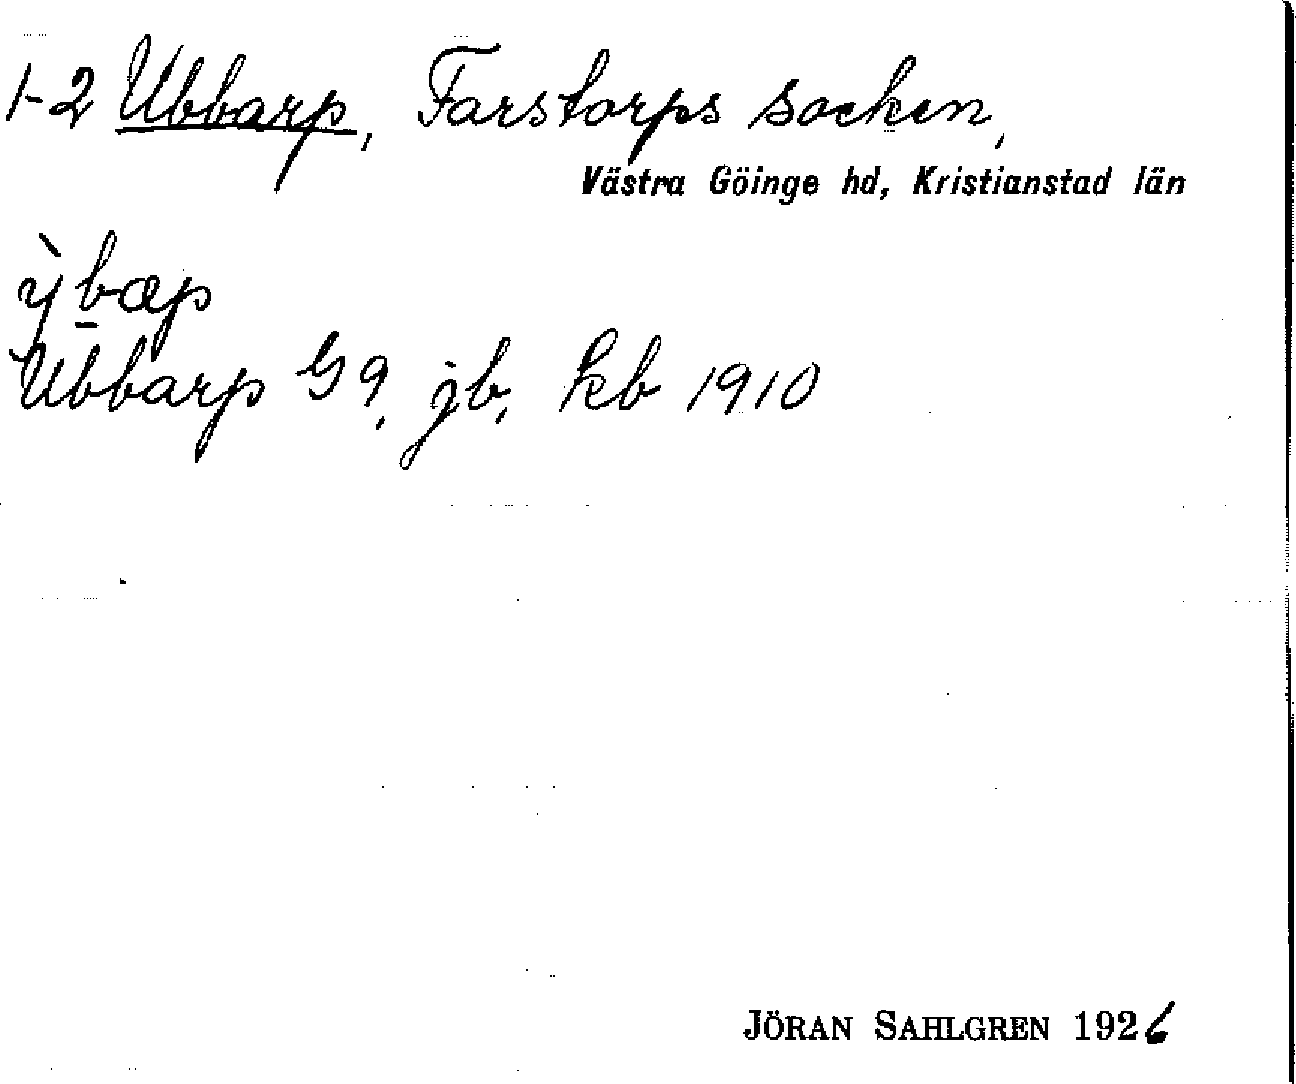 1-2 Ubbarp, Farstorps socken,
Västra Göinge hd, Kristianstad län
ỳb̲æp
Ubbarp G 9, jb, kb 1910
JÖRAN SAHLGREN 1926